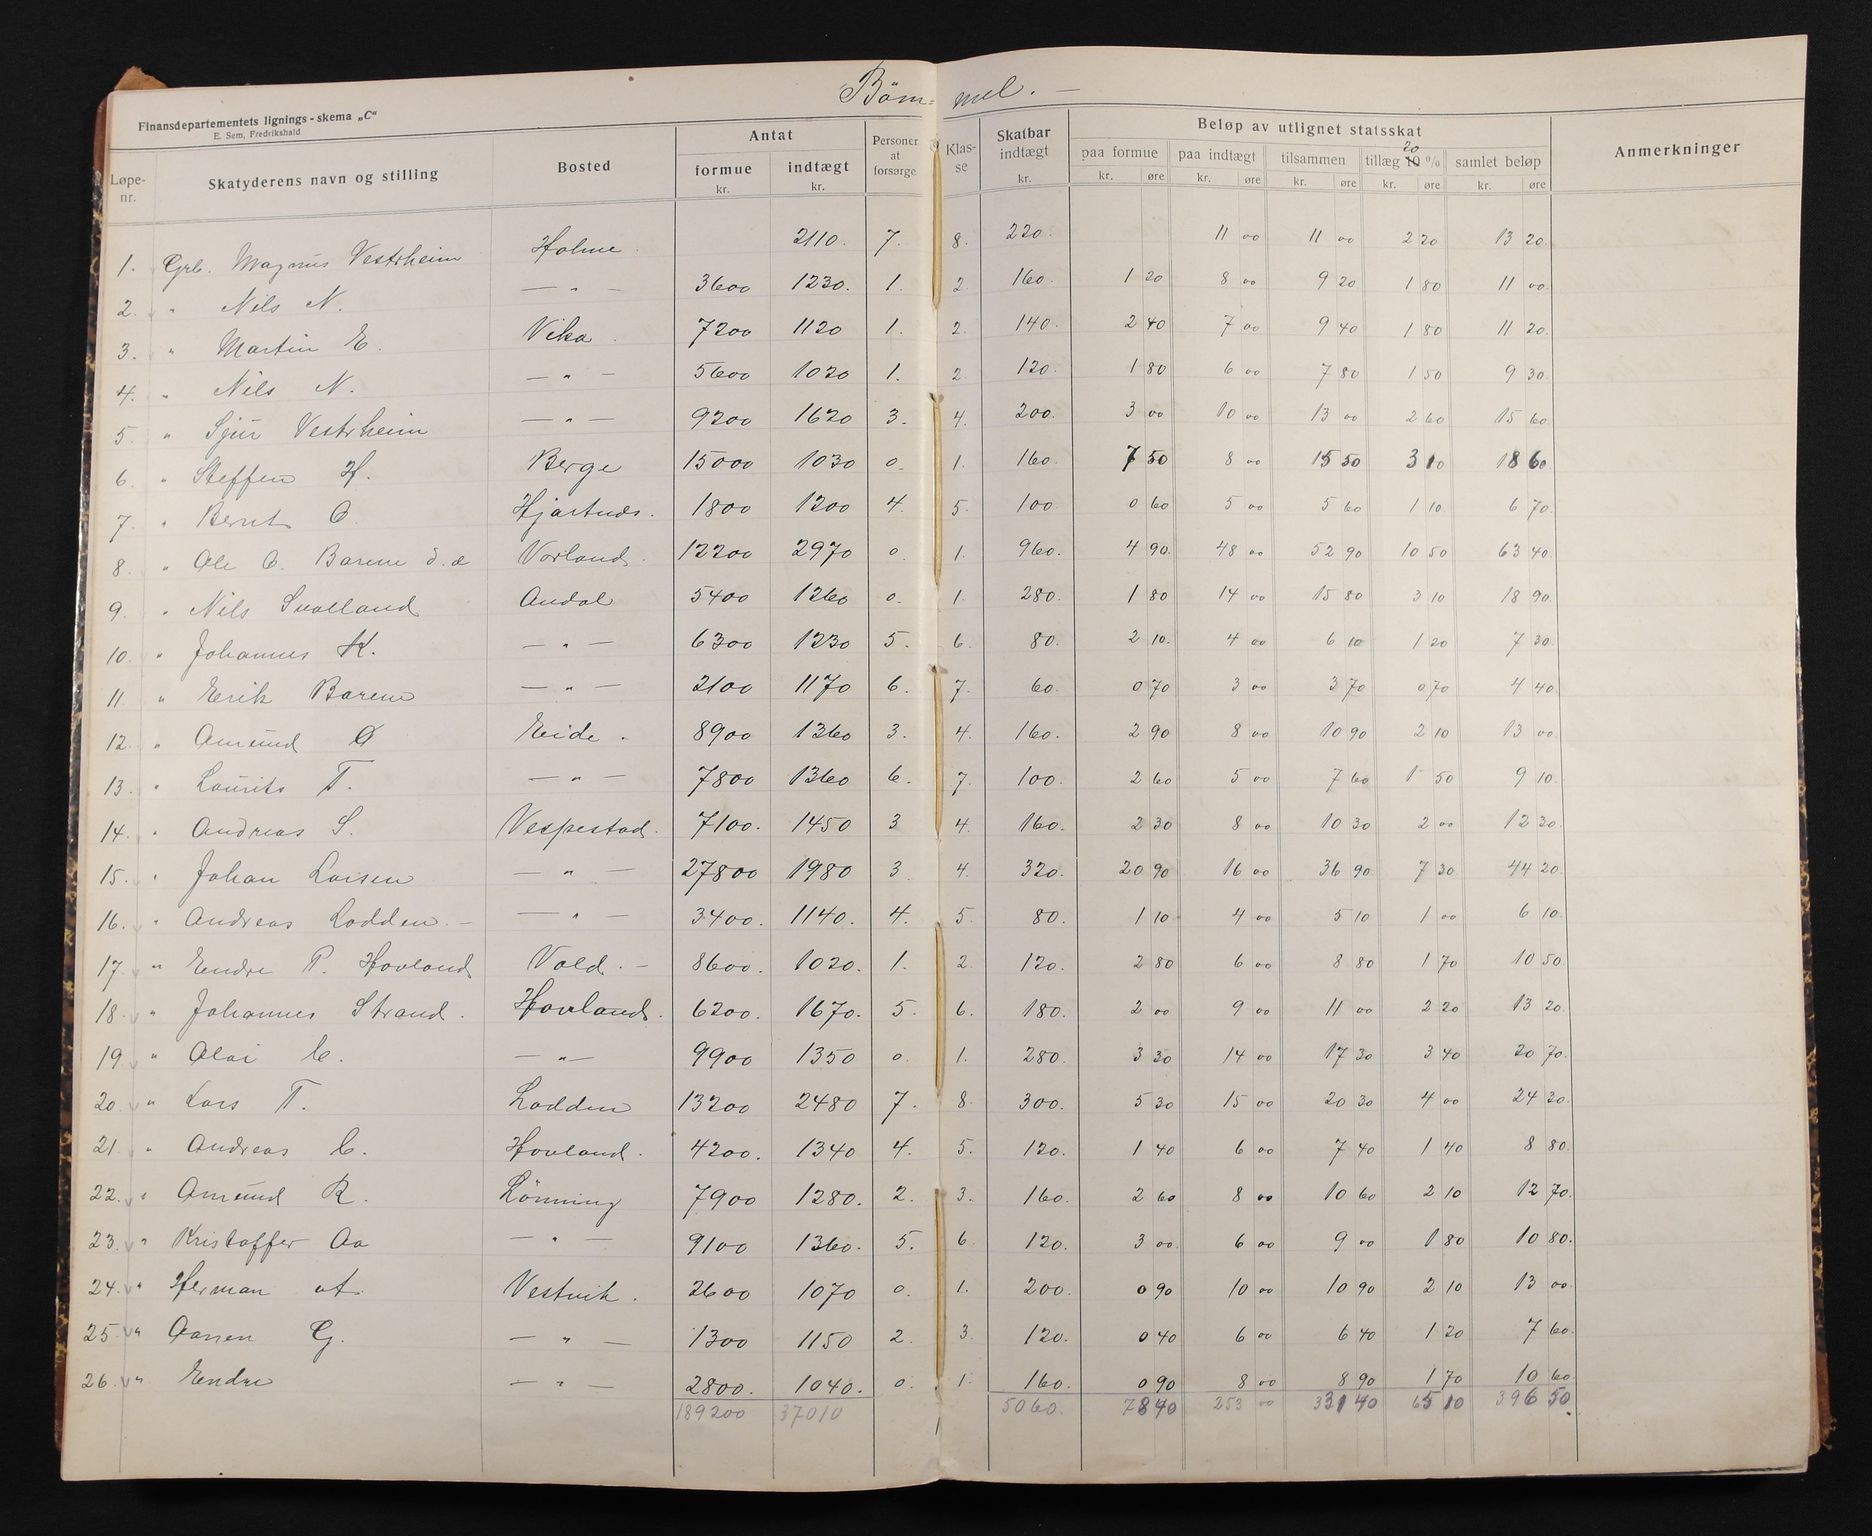 Böm-mel. —
Finansdepartementets lignings-skema „C"
E. Sem, Fredrikshald
Løpe-nr. Skatyderens navn og stilling Bosted Antat formue kr. Antat indtægt kr. Personer at forsørge Klas-se Skatbar indtægt kr. Beløp av utlignet statsskat paa formue kr. øre paa indtægt kr. øre tilsammen kr. øre tillæg 20 10 % kr. øre samlet beløp kr. øre Anmerkninger
1. Grb. Magnus Vestrheim Holme 2110. 7. 8. 220. 11 00 11 00 2 20 13 20.
2. " Nils N. — " — 3600 1230. 1. 2. 160. 1 20 8 00 9 20 1 80 11 00.
3. " Martin E. Vika 7200 1120 1. 2. 140. 2 40 7 00 9 40 1 80 11 20.
4. " Nils N. — " — 5600 1020 1. 2. 120. 1 80 6 00 7 80 1 50 9 30.
5. " Sjur Vestrheim — " — 9200 1620 3. 4. 200. 3 00 10 00 13 00 2 60 15 60.
6. " Steffen H. Berge 15000 1030 0. 1. 160. 7 50 8 00 15 50 3 10 18 60.
7. " Bernt O. Hjartnes. 1800 1200 4. 5. 100. 0 60 5 00 5 60 1 10 6 70.
8. " Ole O. Barene d.æ Vorland. 12200 2970 0. 1. 960. 4 90. 48 00 52 90 10 50 63 40.
9. " Nils Svolland Andal 5400 1260 0. 1. 280. 1 80 14 00 15 80 3 10 18 90.
10. " Johannes K. — " — 6300 1230 5. 6. 80. 2 10. 4 00 6 10 1 20 7 30.
11 " Erik Barene — " — 2100 1170 6. 7. 60. 0 70 3 00 3 70 0 70 4 40.
12. " Amund O Eide. 8900 1360 3. 4. 160. 2 90 8 00 10 90 2 10 13 00.
13. " Laurits T. — " — 7800 1360 6. 7. 100. 2 60 5 00 7 60 1 50 9 10.
14. " Andreas S. Vespestad. 7100. 1450 3 4. 160. 2 30 8 00 10 30 2 00 12 30.
15. " Johan Larsen — " — 27800 1980 3. 4. 320. 20 90 16 00 36 90 7 30 44 20.
16. " Andreas Lodden. — — " — 3400. 1140. 4. 5. 80. 1 10 4 00 5 10 1 00 6 10.
17. " Endre P. Hovland Vold. — 8600. 1020. 1. 2. 120. 2 80 6 00 8 80 1 70 10 50.
18. " Johannes Strand. Hovland. 6200. 1670. 5. 6. 180. 2 00 9 00 11 00 2 20 13 20.
19. " Olai C. — " — 9900 1350 0. 1. 280. 3 30 14 00 17 30 3 40 20 70.
20. " Lars T. Lodden 13200 2480 7. 8. 300. 5 30 15 00 20 30 4 00 24 30.
21. " Andreas C. Hovland. 4200. 1340 4. 5. 120. 1 40 6 00 7 40 1 40 8 80.
22. " Amund R. Lönning 7900 1280. 2. 3. 160. 2 60 8 00 10 60 2 10 12 70.
23. " Kristoffer Aa — " — 9100 1360. 5. 6. 120. 3 00. 6 00 9 00 1 80 10 80.
24. " Herman Vestvik. 2600 1070 0. 1. 200. 0 90 10 00 10 90 2 10 13 00.
25. " Aanen G. — " — 1300 1150 2. 3. 120. 0 40 6 00 6 40 1 20 7 60.
26. " Endre — " — 2800. 1040. 0. 1. 160. 0 90 8 00 8 90 1 70 10 60
189200 37010 5060. 78 40 253 00 331 40 65 10 396 50.